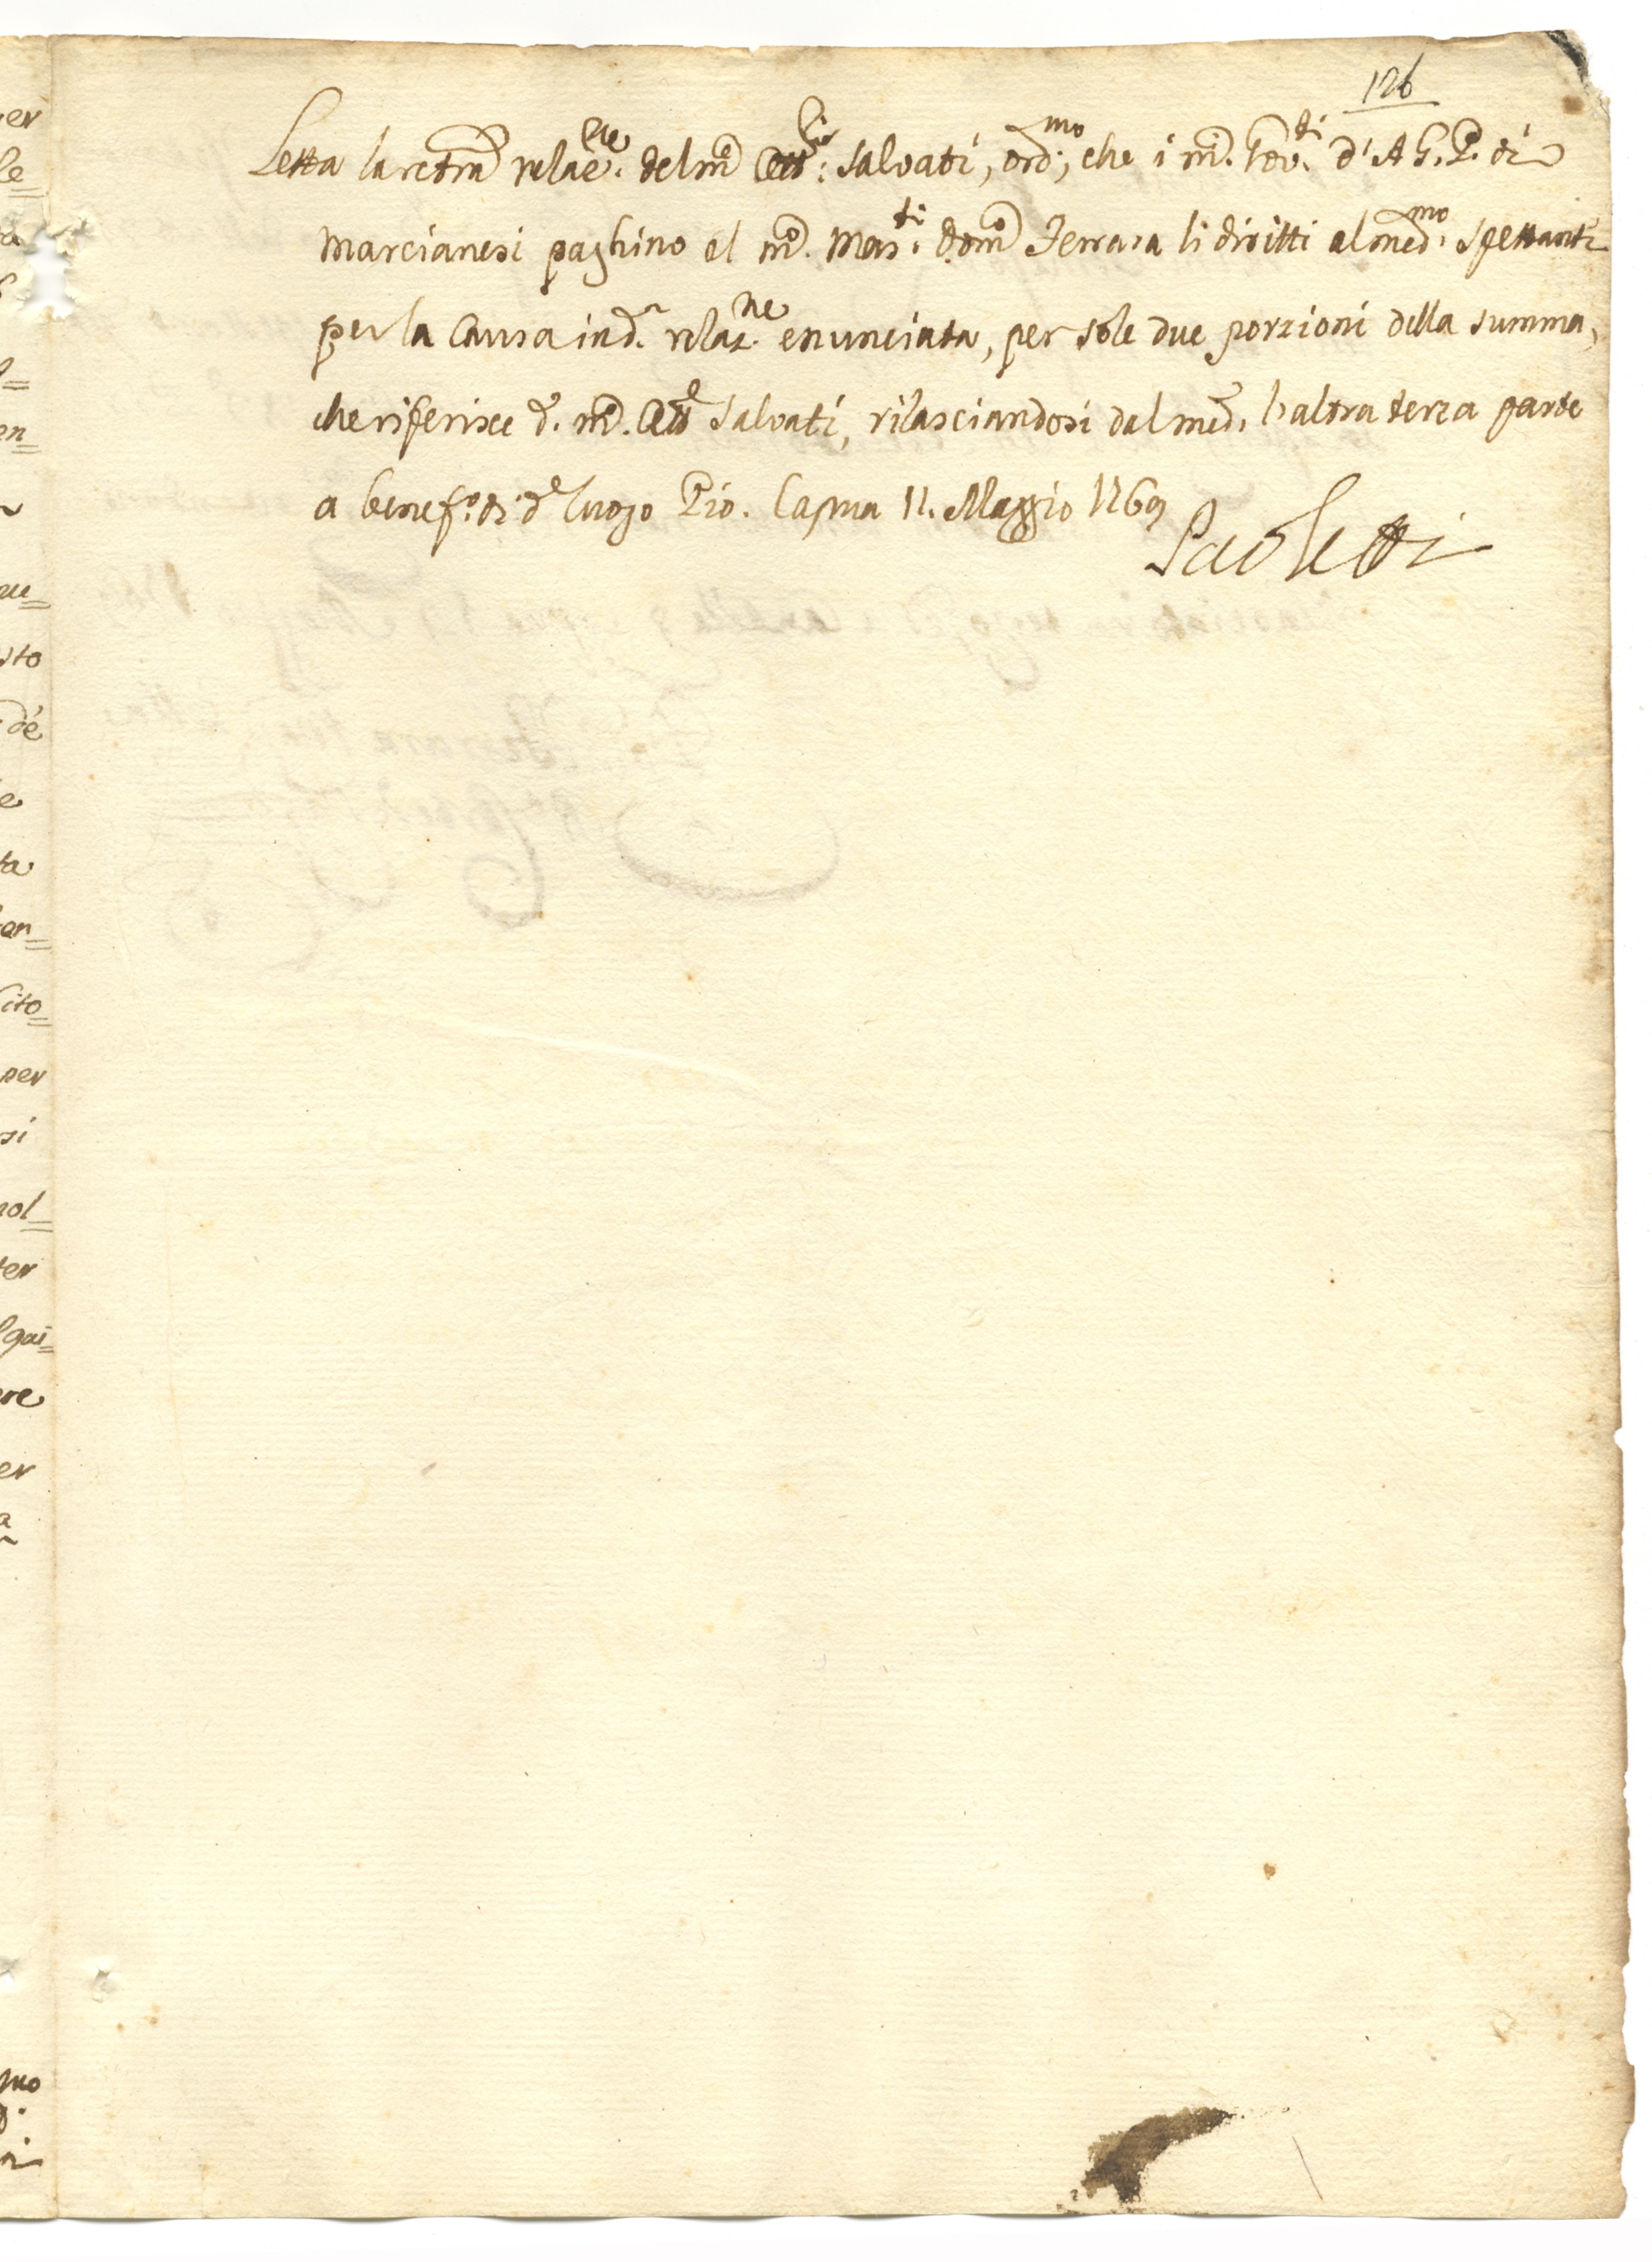 126
Letta la retra relaz.ne del mco Salvati, ord.mo, che i mci. Gov.ti d'A.G.P. di
Marcianesi paghino al mco. Mas.ti dom.co Ferrara li diritti al med.mo spettanti
per la causa in da. relaz.ne enunciata, per sole due porzioni della summa,
che riferisce do. mco. Salvati, rilasciandosi dal med.o l'altra terza parte
a benef.o di do luogo Pio. Capua 11. Maggio 1769
Paoletti